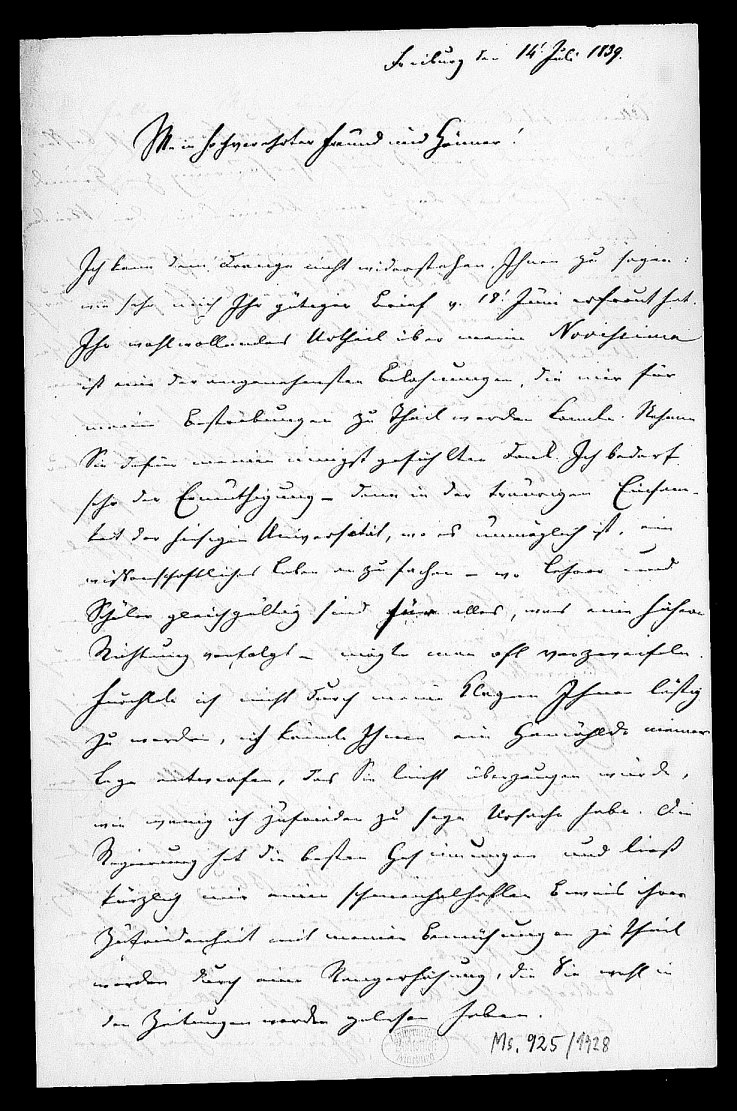 Freiburg den 14' Juli 1839.
Mein hochverehrter Freund und Gönner!
Ich kann dem Drange nicht widerstehen, Ihnen zu sagen:
wie sehr mich Ihr gütiger Brief v. 18' Juni erfreut hat.
Ihr wohlwollendes Urtheil über meine
ist eine der angenehmsten Belohnungen, die mir für
meine Bestrebungen zu Theil werden konnte. Nehmen
Sie dafür meinen innigst gefühlten Dank. Ich bedarf
sehr der Ermuthigung – denn in der traurigen Einsam-
keit der hiesigen Universität, wo es unmöglich ist, ein
wissenschaftliches Leben anzufachen – wo Lehrer und
Schüler gleichgültig sind für alles, was eine höhere
Richtung verfolgt – mögte man oft verzweifeln.
Fürchtete ich nicht durch meine Klagen Ihnen lästig
zu werden, ich könnte Ihnen ein Gemählde meiner
Lage entwerfen, das Sie leicht überzeugen würde,
wie wenig ich zufrieden zu seyn Ursache habe. Die
Regierung hat die besten Gesinnungen und ließ
kürzlich mir einen schmeichelhaften Beweis ihrer
Zufriedenheit mit meinen Bemühungen zu Theil
werden durch eine Rangerhöhung, die Sie wohl in
den Zeitungen werden gelesen haben.
Ms. 925/1928